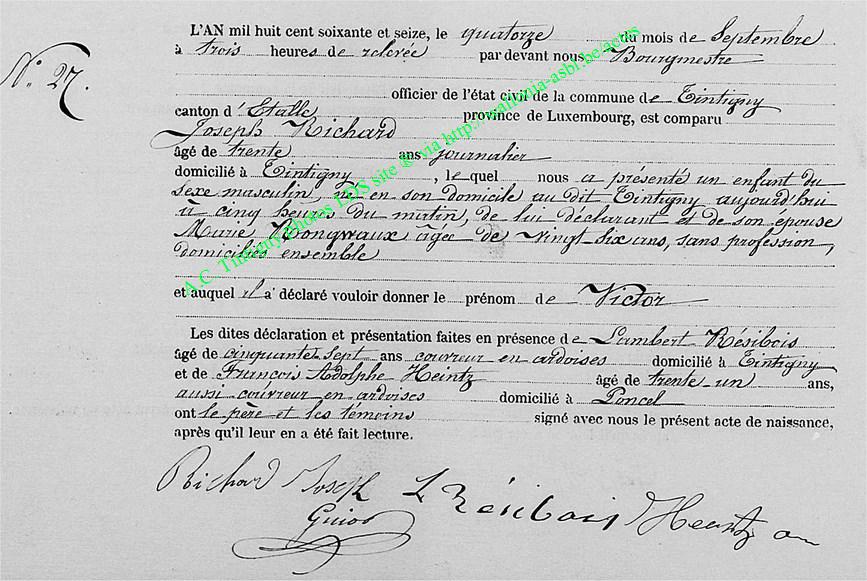 L'AN mil huit cent soixante et seize, le quatorze du mois de Septembre
à trois heures de relevée par devant nous Bourgmestre
N° 27.
officier de l'état civil de la commune de Tintigny
canton d'Etalle province de Luxembourg, est comparu
Joseph Richard
âgé de trente ans journalier
domicilié à Tintigny, lequel nous a présenté un enfant du
sexe masculin, né en son domicile au dit Tintigny aujourd'hui
à cinq heures du matin, de lui déclarant et de son épouse
Marie Rongvaux âgée de vingt six ans, sans profession,
domiciliés ensemble
et auquel il a déclaré vouloir donner le prénom de Victor
Les dites déclaration et présentation faites en présence de Lambert Résibois
âgé de cinquante-sept ans couvreur en ardoises domicilié à Tintigny
et de François Adolphe Heintz âgé de trente-un ans,
aussi couvreur en ardoises domicilié à Poncel
ont le père et les témoins signé avec nous le présent acte de naissance,
après qu'il leur en a été fait lecture.
Richard Joseph L Résibois Heintz
A.C. Tintigny photos LDS site © via http://wallonia-asbl.be/actes